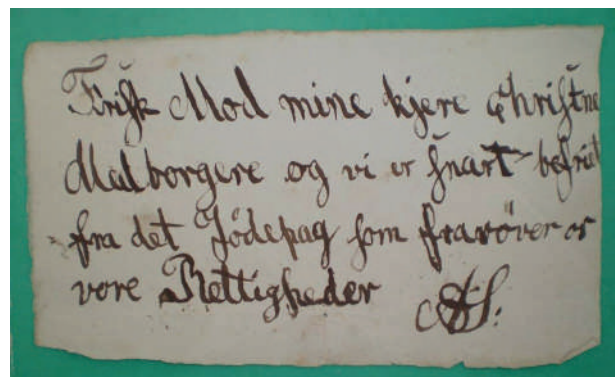 Frisk Mod mine kjere Christne
Medborgere og vi er snart befriet
fra det Jødepag som frarøver os
vore Rettigheder